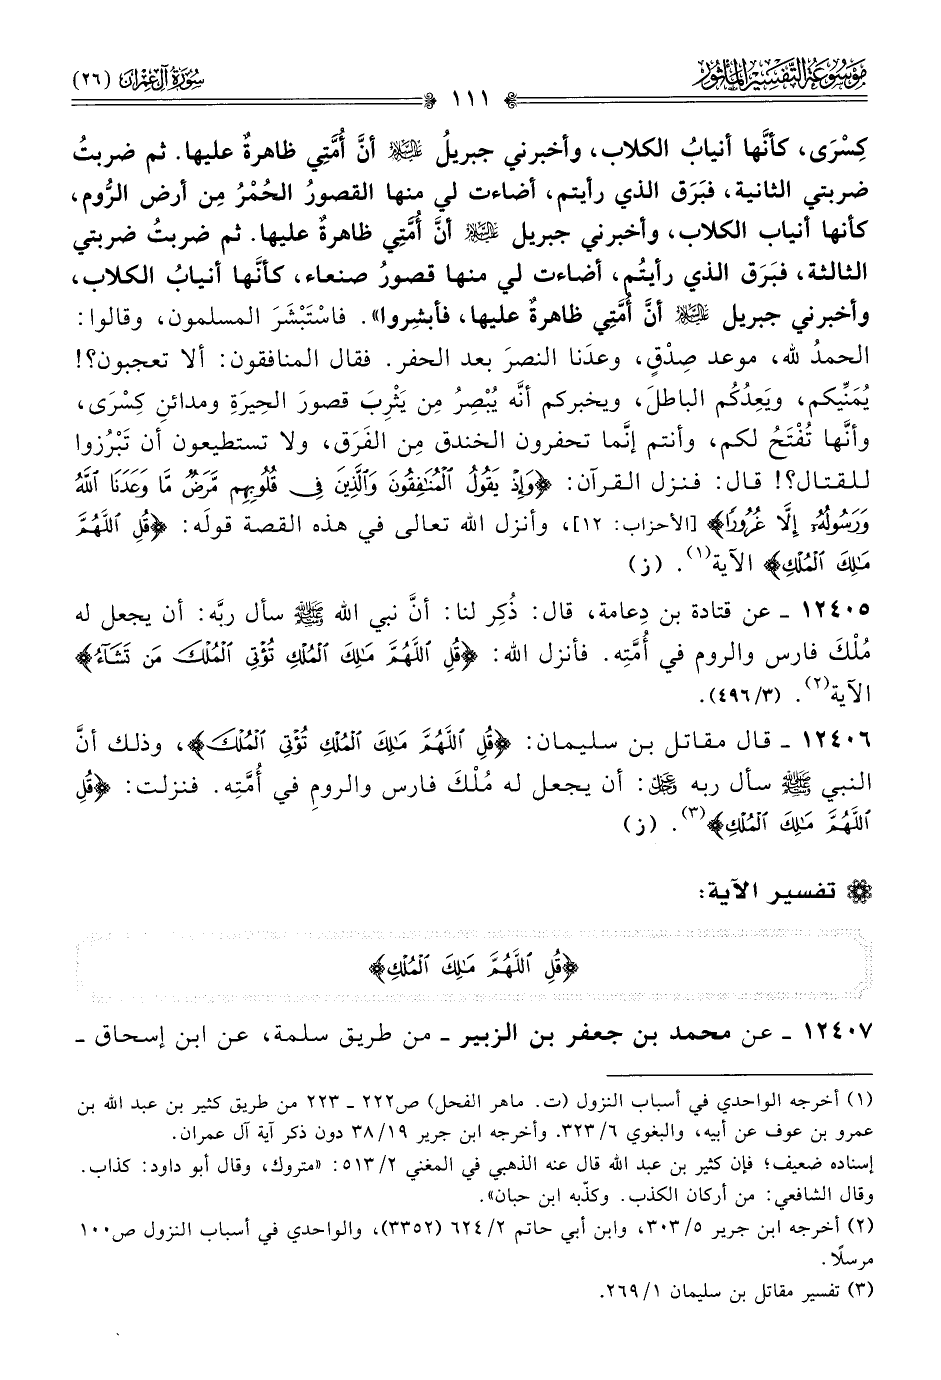 موسوعة التفسير المأثور
١١١
سورة آل عمران (٢٦)
كِسْرَى، كأنَّها أنيابُ الكلاب، وأخبرني جبريلُ عليه السلام أنَّ أُمَّتِي ظاهرةٌ عليها. ثم ضربتُ
ضربتي الثانية، فبَرَق الذي رأيتم، أضاءت لي منها القصورُ الحُمْرُ مِن أرض الرُّوم،
كأنها أنياب الكلاب، وأخبرني جبريل عليه السلام أنَّ أُمَّتِي ظاهرةٌ عليها. ثم ضربتُ ضربتي
الثالثة، فبَرَق الذي رأيتُم، أضاءت لي منها قصورُ صنعاء، كأنَّها أنيابُ الكلاب،
وأخبرني جبريل عليه السلام أنَّ أُمَّتِي ظاهرةٌ عليها، فأبشِروا». فاسْتَبْشَرَ المسلمون، وقالوا:
الحمدُ لله، موعد صِدْقٍ، وعدَنا النصرَ بعد الحفر. فقال المنافقون: ألا تعجبون؟!
يُمَنِّيكم، ويَعِدُكُم الباطلَ، ويخبركم أنَّه يُبْصِرُ مِن يَثْرِبَ قصورَ الحِيرَةِ ومدائنِ كِسْرَى،
وأنَّها تُفْتَحُ لكم، وأنتم إنَّما تحفرون الخندق مِن الفَرَق، ولا تستطيعون أن تَبْرُزوا
للقتال؟! قال: فنزل القرآن: ﴿وَإِذْ يَقُولُ الْمُنَافِقُونَ وَالَّذِينَ فِي قُلُوبِهِم مَّرَضٌ مَّا وَعَدَنَا اللَّهُ
وَرَسُولُهُ إِلَّا غُرُورًا﴾ [الأحزاب: ١٢]، وأنزل الله تعالى في هذه القصة قولَه: ﴿قُلِ اللَّهُمَّ
مَالِكَ الْمُلْكِ﴾ الآية(١). (ز)
١٢٤٠٥ ـ عن قتادة بن دِعامة، قال: ذُكِر لنا: أنَّ نبي الله ﷺ سأل ربَّه: أن يجعل له
مُلْكَ فارس والروم في أُمَّتِه. فأنزل الله: ﴿قُلِ اللَّهُمَّ مَالِكَ الْمُلْكِ تُؤْتِي الْمُلْكَ مَن تَشَاءُ﴾
الآية(٢). (٤٩٦/٣).
١٢٤٠٦ ـ قال مقاتل بن سليمان: ﴿قُلِ اللَّهُمَّ مَالِكَ الْمُلْكِ تُؤْتِي الْمُلْكَ﴾، وذلك أنَّ
النبي ﷺ سأل ربه عز وجل: أن يجعل له مُلْكَ فارس والرومِ في أُمَّتِه. فنزلت: ﴿قُلِ
اللَّهُمَّ مَالِكَ الْمُلْكِ﴾(٣). (ز)
تفسير الآية:
﴿قُلِ اللَّهُمَّ مَالِكَ الْمُلْكِ﴾
١٢٤٠٧ ـ عن محمد بن جعفر بن الزبير ـ من طريق سلمة، عن ابن إسحاق ـ
(١) أخرجه الواحدي في أسباب النزول (ت. ماهر الفحل) ص٢٢٢ ـ ٢٢٣ من طريق كثير بن عبد الله بن
عمرو بن عوف عن أبيه، والبغوي ٣٢٣/٦. وأخرجه ابن جرير ٣٨/١٩ دون ذكر آية آل عمران.
إسناده ضعيف؛ فإن كثير بن عبد الله قال عنه الذهبي في المغني ٥١٣/٢: «متروك، وقال أبو داود: كذاب.
وقال الشافعي: من أركان الكذب. وكذّبه ابن حبان».
(٢) أخرجه ابن جرير ٣٠٣/٥، وابن أبي حاتم ٦٢٤/٢ (٣٣٥٢)، والواحدي في أسباب النزول ص١٠٠
مرسلًا.
(٣) تفسير مقاتل بن سليمان ٢٦٩/١.